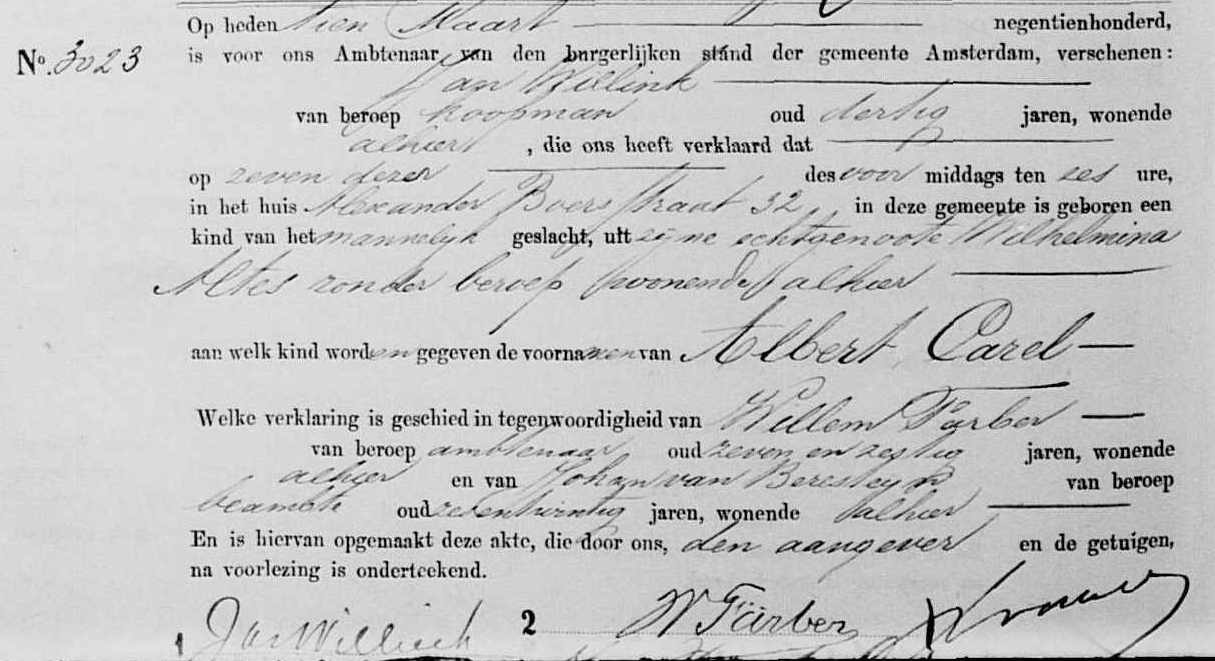 Op heden tien Maart negentienhonderd,
No. 3023 is voor ons Ambtenaar van den burgerlijken stand der gemeente Amsterdam, verschenen:
Jan Willink
van beroep koopman oud dertig jaren, wonende
alhier, die ons heeft verklaard dat
op zeven dezer des voor middags ten zes ure,
in het huis Alexander Boersstraat 32 in deze gemeente is geboren een
kind van het mannelijk geslacht, uit zijne echtgenoote Wilhelmina
Altes zonder beroep wonende alhier
aan welk kind worden gegeven de voornamen van Albert Carel
Welke verklaring is geschied in tegenwoordigheid van Willem Färber
van beroep ambtenaar oud zeven en zestig jaren, wonende
alhier en van Johan van Beresteyn van beroep
beambte oud jaren, wonende alhier
En is hiervan opgemaakt deze akte, die door ons, den aangever en de getuigen,
na voorlezing is onderteekend.
1 Jan Willink 2 W Färber